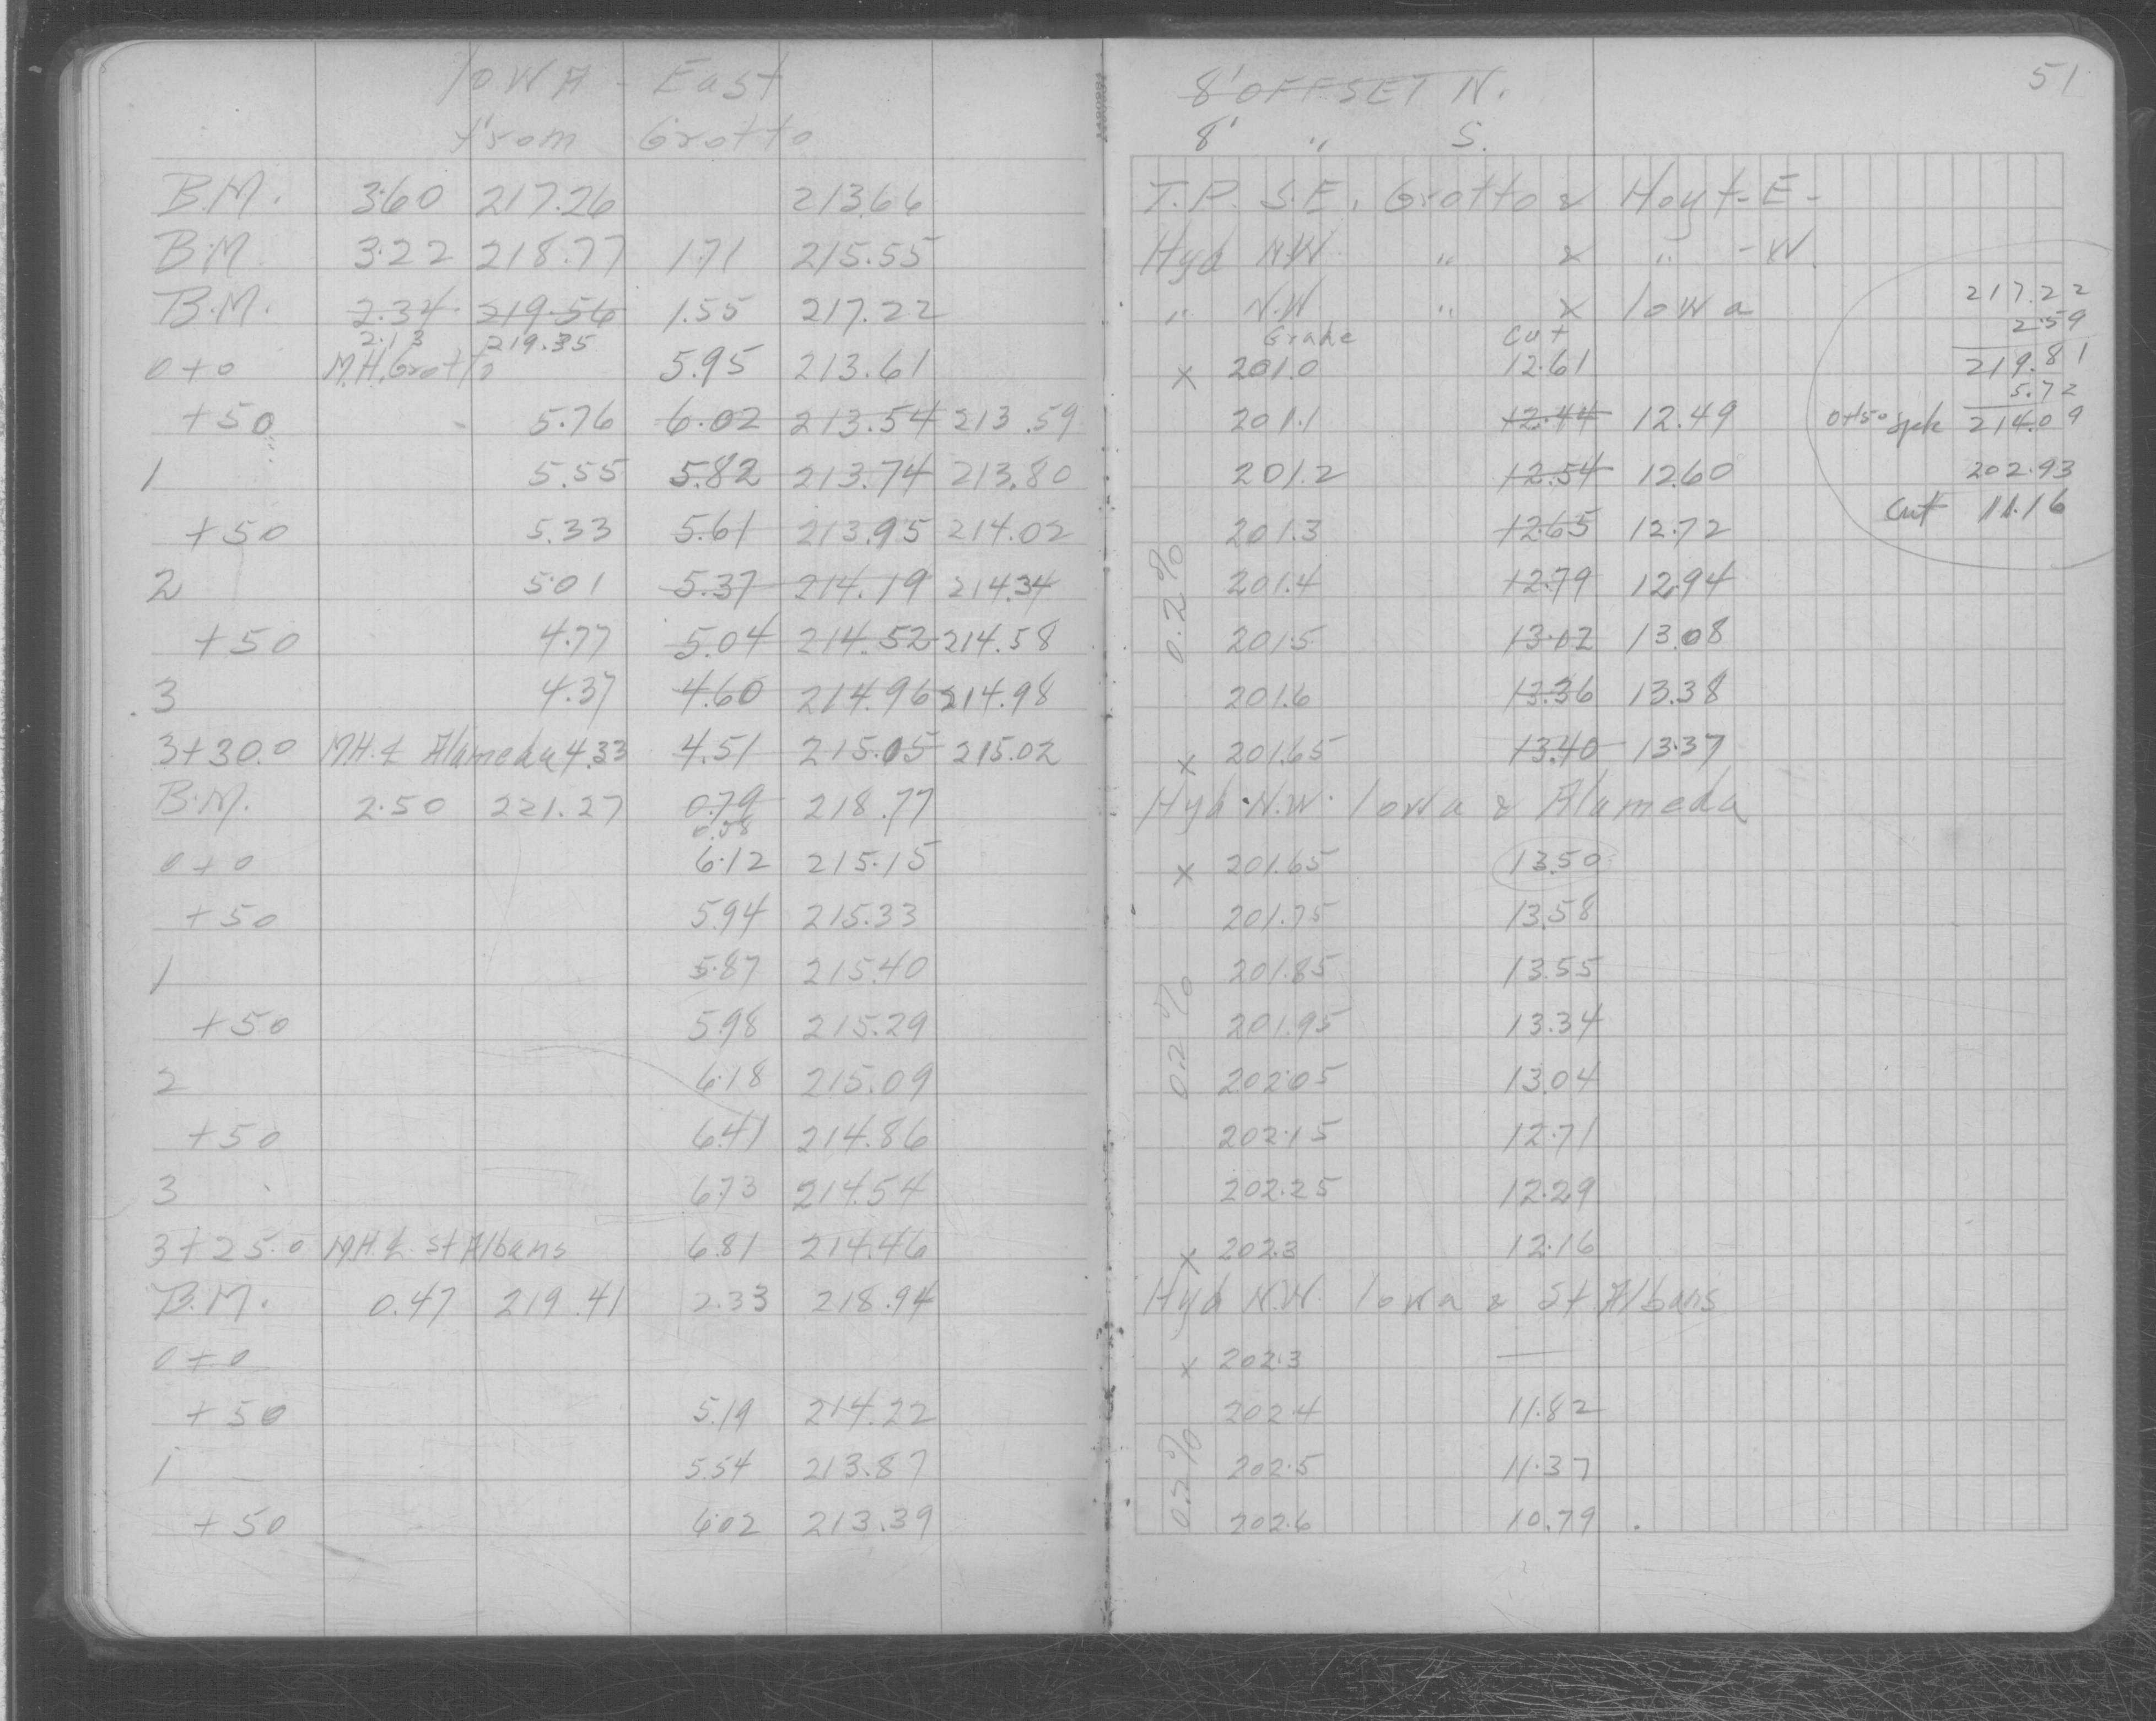 Iowa - East
from Grotto
B.M. 3.60 217.26 213.66
B.M. 3.22 218.77 1.71 215.55
B.M. 2.34 219.56 1.55 217.22
2.13 219.35
0+0 M.H. Grotto 5.95 213.61
+50 5.76 6.02 213.54 213.59
1 5.55 5.82 213.74 213.80
+50 5.33 5.61 213.95 214.02
2 5.01 5.37 214.19 214.34
+50 4.77 5.04 214.52 214.58
3 4.37 4.60 214.96 214.98
3+30.0 M.H. ℄ Alameda 4.33 4.51 215.05 215.02
B.M. 2.50 221.27 0.79 218.77
0.58
0+0 6.12 215.15
+50 5.94 215.33
1 5.87 215.40
+50 5.98 215.29
2 6.18 215.09
+50 6.41 214.86
3 6.73 214.54
3+25.0 M.H. ℄ St Albans 6.81 214.46
B.M. 0.47 219.41 2.33 218.94
0+0
+50 5.19 214.22
1 5.54 213.87
+50 6.02 213.39
51
8' OFFSET N.
8' " S.
T.P. S.E. Grotto & Hoyt-E-
Hyd N.W. " & " -W.
" N.W " & Iowa
Grade Cut
x 201.0 12.61
201.1 12.44 12.49
201.2 12.54 12.60
201.3 12.65 12.72
0.2%
201.4 12.79 12.94
201.5 13.02 13.08
201.6 13.36 13.38
x 201.65 13.40 13.37
Hyd. N.W. Iowa & Alameda
x 201.65 13.50
201.75 13.58
201.85 13.55
0.2%
201.95 13.34
202.05 13.04
202.15 12.71
202.25 12.29
x 202.3 12.16
Hyd N.W. Iowa & St. Albans
x 202.3 —
202.4 11.82
0.2%
202.5 11.37
202.6 10.79
217.22
2.59
219.81
5.72
0+50 spk 214.09
202.93
Cut 11.16